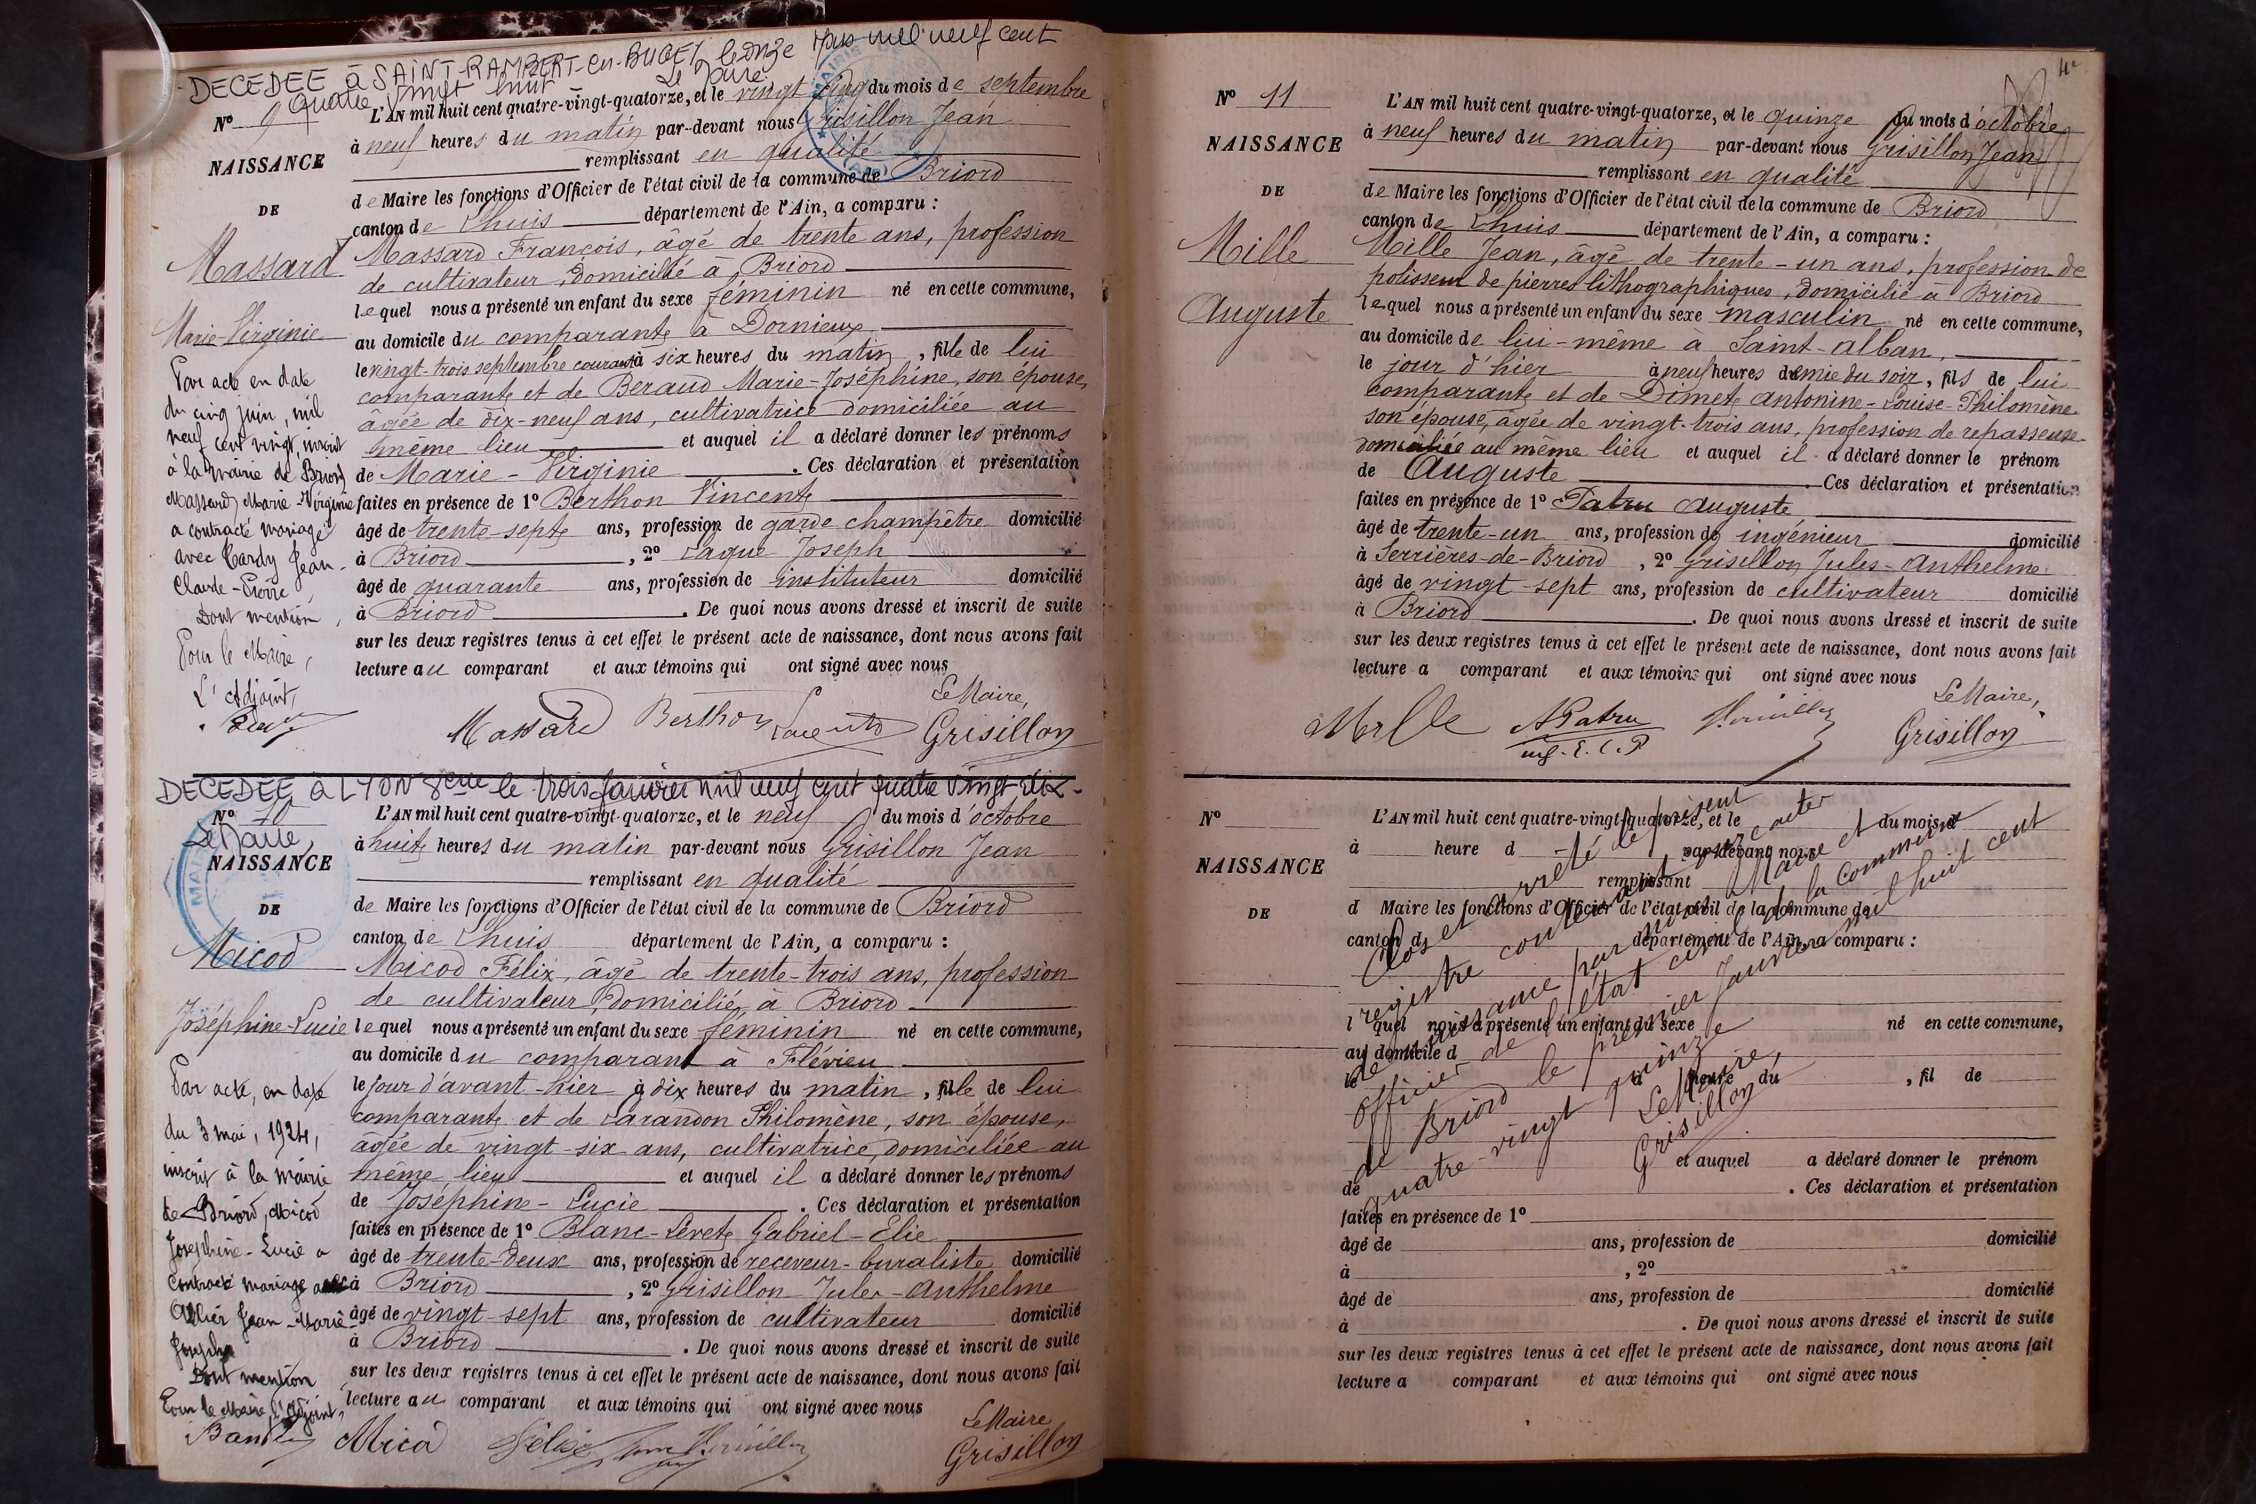 DECEDEE à SAINT-RAMBERT-en-BUGEY le onze mars mil neuf cent
quatre vingt huit Le Maire
N° 9
NAISSANCE
DE
Massard
Marie-Virginie
Par acte en date
du cinq juin, mil
neuf cent vingt, inscrit
à la mairie de Briord
Massard Marie-Virginie
a contracté mariage
avec Cardy Jean-
Claude-Pierre
Dont mention,
Pour le Maire,
L'Adjoint,
L'AN mil huit cent quatre-vingt-quatorze, et le vingt cinq du mois de septembre
à neuf heures du matin par-devant nous Grisillon Jean
remplissant en qualité
de Maire les fonctions d'Officier de l'état civil de la commune de Briord
canton de Lhuis département de l'Ain, a comparu :
Massard François, âgé de trente ans, profession
de cultivateur, domicilié à Briord
lequel nous a présenté un enfant du sexe féminin né en cette commune,
au domicile du comparant, à Dornieux
le vingt-trois septembre courant à six heures du matin, fille de lui
comparant, et de Beraud Marie-Joséphine, son épouse,
âgée de dix-neuf ans, cultivatrice domiciliée au
même lieu et auquel il a déclaré donner les prénoms
de Marie-Virginie . Ces déclaration et présentation
faites en présence de 1° Berthon Vincent
âgé de trente-sept ans, profession de garde champêtre domicilié
à Briord , 2° Laque Joseph
âgé de quarante ans, profession de instituteur domicilié
à Briord . De quoi nous avons dressé et inscrit de suite
sur les deux registres tenus à cet effet le présent acte de naissance, dont nous avons fait
lecture au comparant et aux témoins qui ont signé avec nous
Le Maire,
Massard Berthon Grisillon
DECEDEE à LYON 8eme le trois Janvier mil neuf cent quatre vingt dix-
N° 10
Le Maire,
NAISSANCE
DE
Micod
Joséphine-Lucie
Par acte, en date
du 3 mai, 1924,
inscrit à la mairie
de Briord, Micod
Joséphine-Lucie a
contracté mariage avec
Allier Jean-Marie-
Joseph
Dont mention
Pour le Maire, l'Adjoint,
L'AN mil huit cent quatre-vingt-quatorze, et le neuf du mois d'octobre
à huit heures du matin par-devant nous Grisillon Jean
remplissant en qualité
de Maire les fonctions d'Officier de l'état civil de la commune de Briord
canton de Lhuis département de l'Ain, a comparu :
Micod Félix, âgé de trente-trois ans, profession
de cultivateur, domicilié à Briord
lequel nous a présenté un enfant du sexe féminin né en cette commune,
au domicile du comparant à Flévieu
le jour d'avant-hier à dix heures du matin, fille de lui
comparant, et de Larandon Philomène, son épouse,
âgée de vingt-six ans, cultivatrice, domiciliée au
même lieu et auquel il a déclaré donner les prénoms
de Joséphine-Lucie . Ces déclaration et présentation
faites en présence de 1° Blanc-Levet, Gabriel-Elie
âgé de trente-deux ans, profession de receveur-buraliste domicilié
à Briord , 2° Grisillon Jules-Anthelme
âgé de vingt-sept ans, profession de cultivateur domicilié
à Briord . De quoi nous avons dressé et inscrit de suite
sur les deux registres tenus à cet effet le présent acte de naissance, dont nous avons fait
lecture au comparant et aux témoins qui ont signé avec nous
Le Maire
Micod Félix Grisillon
4e
N° 11
NAISSANCE
DE
Mille
Auguste
L'AN mil huit cent quatre-vingt-quatorze, et le quinze du mois d'octobre
à neuf heures du matin par-devant nous Grisillon Jean
remplissant en qualité
de Maire les fonctions d'Officier de l'état civil de la commune de Briord
canton de Lhuis département de l'Ain, a comparu :
Mille Jean, âgé de trente-un ans, profession de
polisseur de pierres lithographiques, domicilié à Briord
lequel nous a présenté un enfant du sexe masculin né en cette commune,
au domicile de lui-même à Saint-Alban,
le jour d'hier à neuf heures demie du soir, fils de lui
comparant, et de Dimet, Antonine-Louise-Philomène
son épouse, âgée de vingt-trois ans, profession de repasseuse
domiciliée au même lieu et auquel il a déclaré donner le prénom
de Auguste . Ces déclaration et présentation
faites en présence de 1° Patru Auguste
âgé de trente-un ans, profession de ingénieur domicilié
à Serrières-de-Briord , 2° Grisillon Jules-Anthelme
âgé de vingt-sept ans, profession de cultivateur domicilié
à Briord . De quoi nous avons dressé et inscrit de suite
sur les deux registres tenus à cet effet le présent acte de naissance, dont nous avons fait
lecture a comparant et aux témoins qui ont signé avec nous
Le Maire,
Mille APatru Grisillon
ing. E.C.P
N°
NAISSANCE
DE
L'AN mil huit cent quatre-vingt-quatorze, et le du mois d
à heure d par-devant nous
remplissant
d Maire les fonctions d'Officier de l'état civil de la commune de
canton d département de l'Ain, a comparu :
l quel nous a présenté un enfant du sexe né en cette commune,
au domicile d
le à heure du , fil de
et auquel a déclaré donner le prénom
de . Ces déclaration et présentation
faites en présence de 1°
âgé de ans, profession de domicilié
à , 2°
âgé de ans, profession de domicilié
à . De quoi nous avons dressé et inscrit de suite
sur les deux registres tenus à cet effet le présent acte de naissance, dont nous avons fait
lecture a comparant et aux témoins qui ont signé avec nous
Clos et arrêté le présent
registre contenant onze actes
de naissance par nous Maire et
officier de l'état civil de la commune
de Briord le premier Janvier mil huit cent
quatre-vingt quinze
Le Maire,
Grisillon